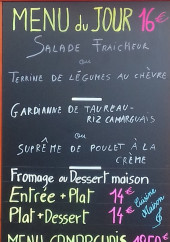 MENU du JOUR 16€
SALADE FRAICHEUR
ou
TERRINE DE LÉGUMES AU CHÈVRE
GARDIANNE DE TAUREAU-
RIZ CAMARGUAIS
ou
SUPRÊME DE POULET À LA
CRÈME
Fromage ou Dessert maison
Entrée + Plat 14€
Plat + Dessert 14€
Cuisine
Maison
MENU CAMARGUAIS